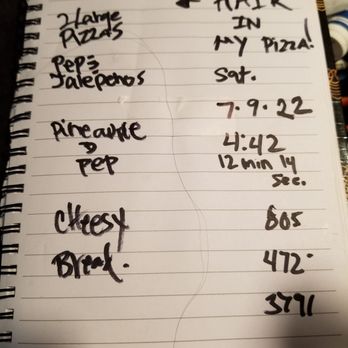 2 large
Pizzas
Pep &
Jalepenos
Pineapple
&
Pep
Cheesy
Bread.
HAIR
IN
MY PIZZA!
Sat.
7-9-22
4:42
12 min 14
Sec.
805
472-
3791